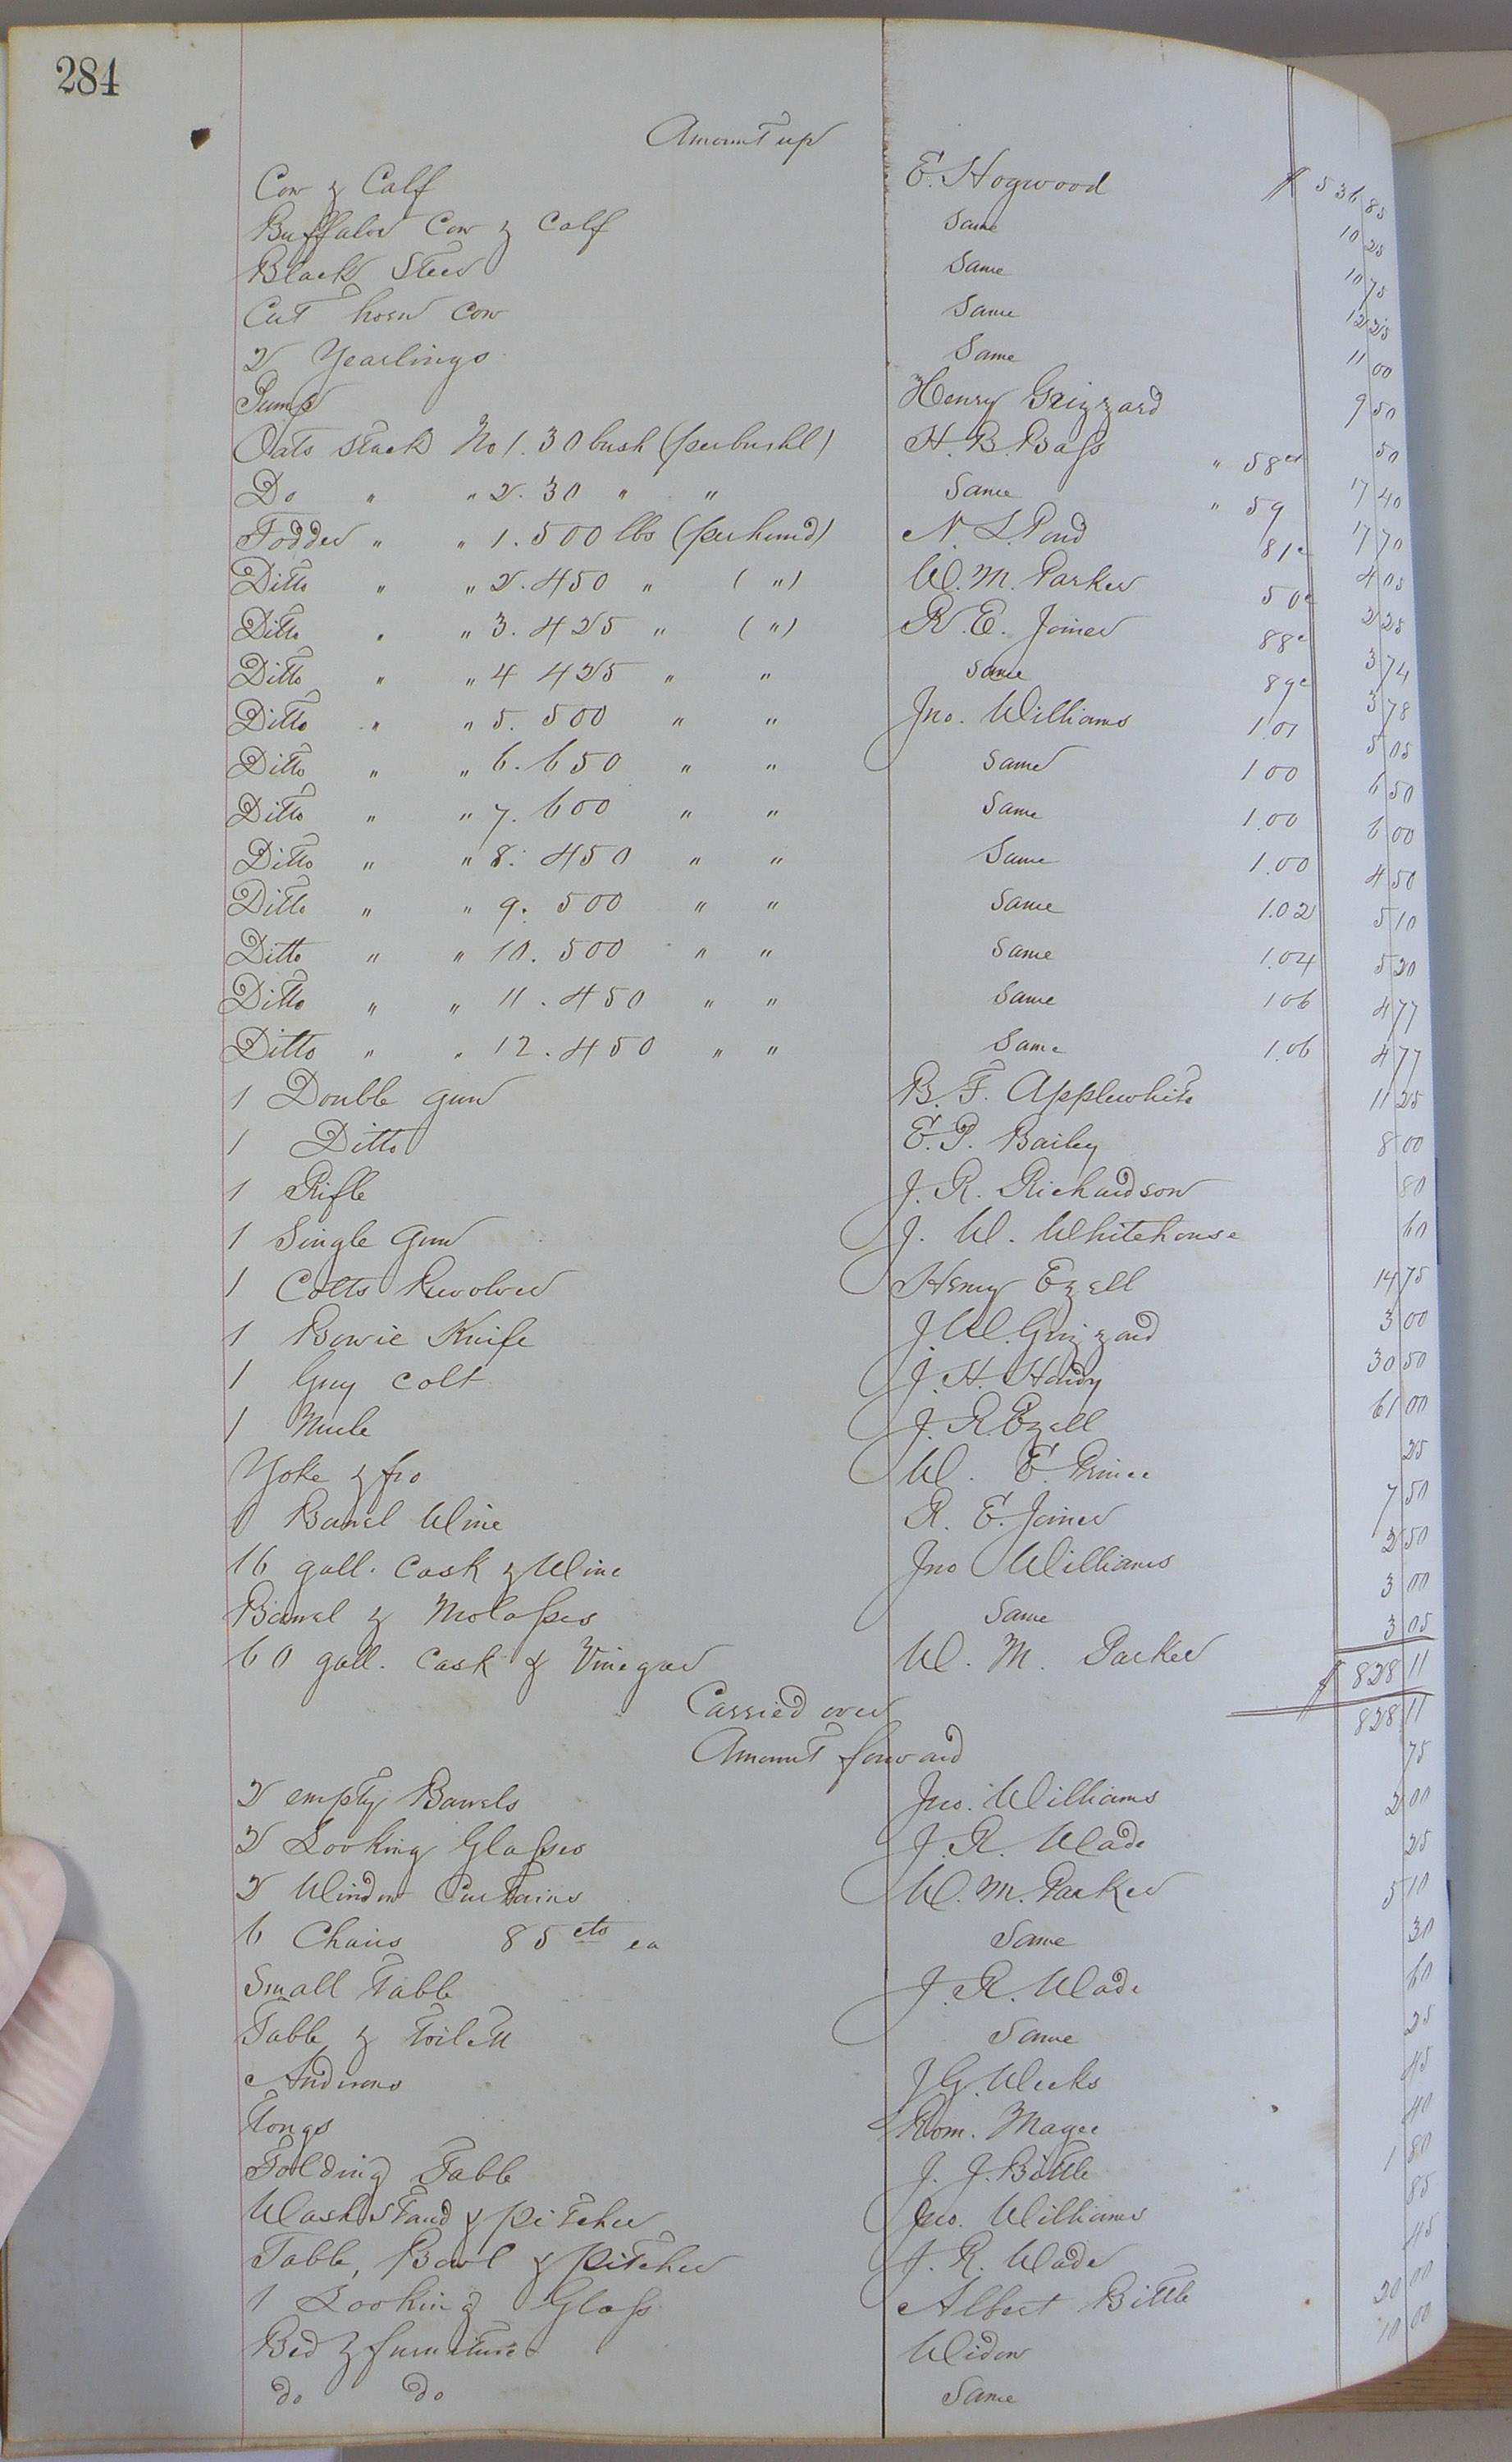 284
Amount up $ 536 85
Cow & Calf E. Hogwood 10 25
Buffaloe Cow & Calf Same 10 75
Black Steer Same 12 25
Cut horn Cow Same 11 00
2 Yearlings Same 9 50
Pump Henry Grizzard 50
Oats Stack No 1. 30 bush (per bushl) H. B. Bass " 58cts 17 40
Do " " 2. 30 " " Same " 59 17 70
Fodder " " 1. 500 lbs (per hund) N. L. Pond 81c 4 05
Ditto " " 2. 450 " ( " ) W. M. Parker 50c 2 25
Ditto " " 3. 425 " ( " ) R. E. Joiner 88c 3 74
Ditto " " 4 425 " " Same 89c 3 78
Ditto " " 5. 500 " " Jno. Williams 1.01 5 05
Ditto " " 6. 650 " " Same 1 00 6 50
Ditto " " 7. 600 " " Same 1.00 6 00
Ditto " " 8. 450 " " Same 1.00 4 50
Ditto " " 9. 500 " " Same 1.02 5 10
Ditto " " 10. 500 " " Same 1.04 5 20
Ditto " " 11. 450 " " Same 1 06 4 77
Ditto " " 12. 450 " " Same 1.06 4 77
1 Double gun B. F. Applewhite 11 25
1 Ditto E. P. Bailey 8 00
1 Rifle J. R. Richardson 80
1 Single Gun J. W. Whitehouse 60
1 Colts Revolver Henry Ezell 14 75
1 Bowie Knife J. W. Grizzard 3 00
1 Grey Colt J. H. Handy 30 50
1 Mule J. R. Ezell 61 00
Yoke & fro W. E. Prince 25
1 Barrel Wine R. E. Joiner 7 50
16 gall. Cask & Wine Jno Williams 2 50
Barrel & Molasses Same 3 00
60 gall. Cask & Vinegar W. M. Parker 3 05
Carried over $ 828 11
Amount forward 828 11
2 empty Barrels Jno. Williams 75
2 Looking Glasses J. R. Wade 2 00
2 Window Curtains W. M. Parker 25
6 Chairs 85 cts ea Same 5 10
Small Table J. R. Wade 30
Table & Toilett Same 60
Andirons J G. Weeks 25
Tongs Rom. Magee 45
Folding Table J. J. Bittle 40
Wash Stand & pitcher Jno. Williams 1 80
Table, Bowl & Pitcher J. R. Wade 85
1 Looking Glass Albert Bittle 45
Bed & furniture Widow 20 00
do do Same 10 00